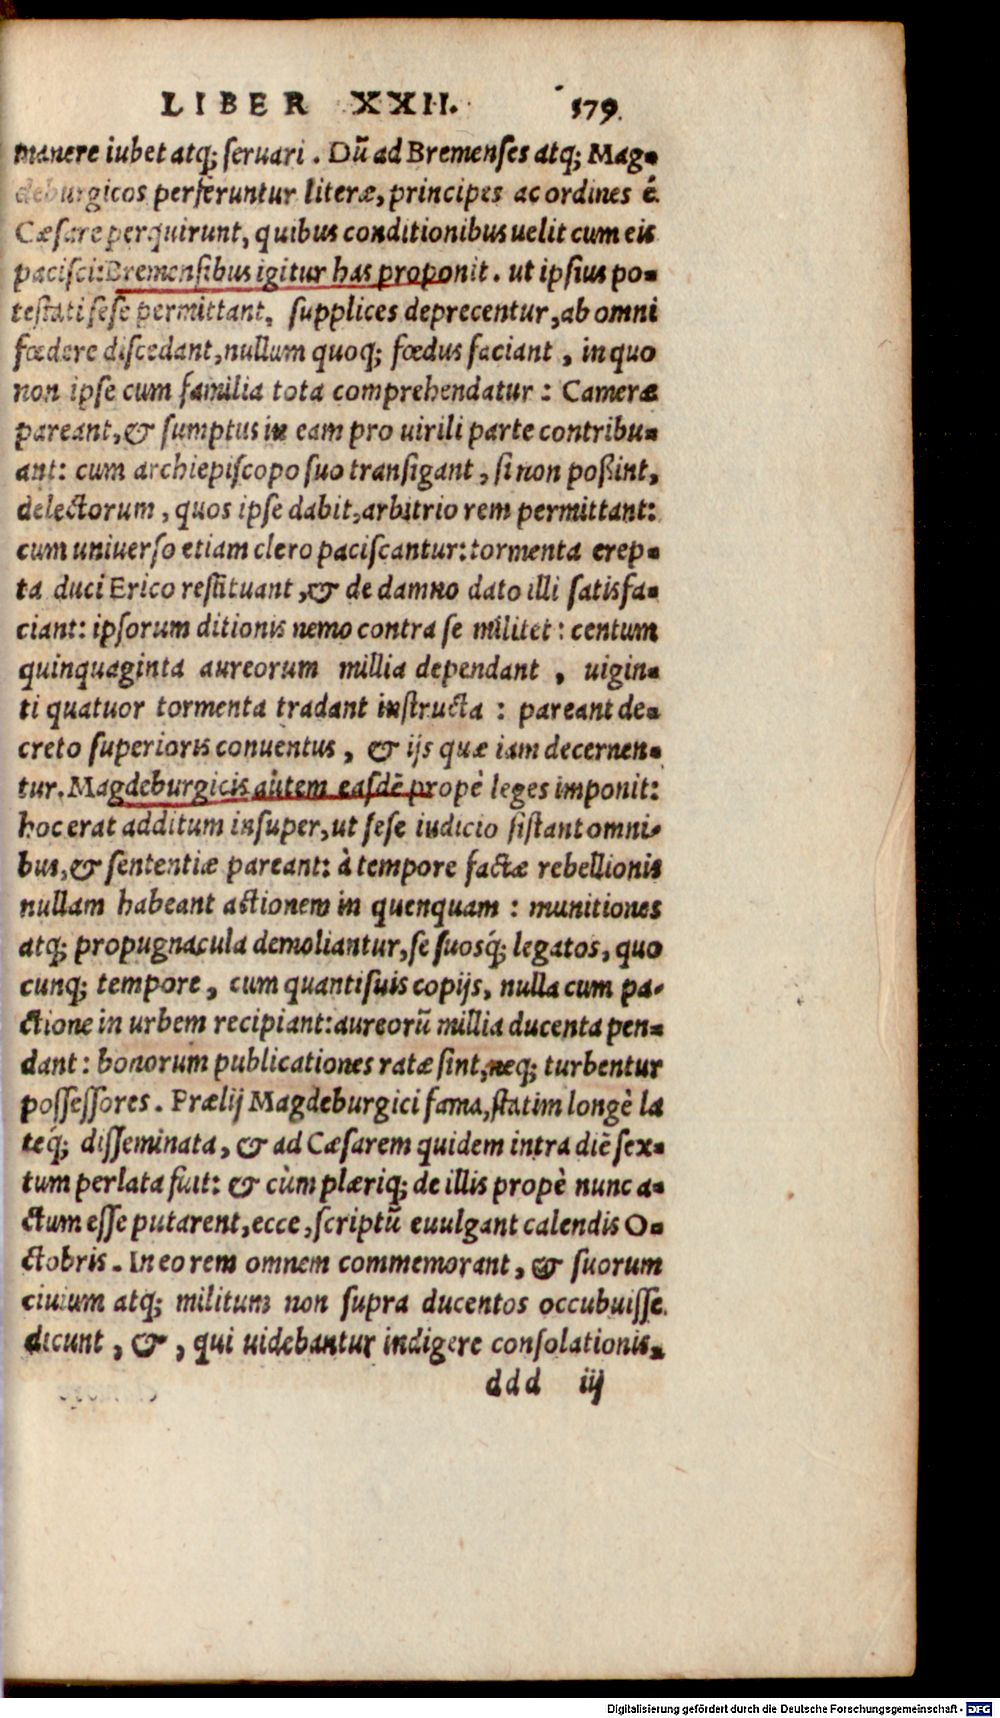 LIBER XXII. 579.
manere iubet atq; seruari. Dū ad Bremenses atq; Mag-
deburgicos perferuntur literæ, principes ac ordines é
Cæsare perquirunt, quibus conditionibus uelit cum eis
pacisci: Bremensibus igitur has proponit. ut ipsius po-
testati sese permittant, supplices deprecentur, ab omni
fœdere discedant, nullum quoq; fœdus faciant, in quo
non ipse cum familia tota comprehendatur: Cameræ
pareant, & sumptus in eam pro uirili parte contribu-
ant: cum archiepiscopo suo transigant, si non poßint,
delectorum, quos ipse dabit, arbitrio rem permittant:
cum uniuerso etiam clero paciscantur: tormenta erep-
ta duci Erico restituant, & de damno dato illi satisfa-
ciant: ipsorum ditionis nemo contra se militet: centum
quinquaginta aureorum millia dependant, uigin-
ti quatuor tormenta tradant instructa: pareant de-
creto superioris conuentus, & ijs quæ iam decernen-
tur. Magdeburgicis aùtem easdē propè leges imponit:
hoc erat additum insuper, ut sese iudicio sistant omni-
bus, & sententiæ pareant: à tempore factæ rebellionis
nullam habeant actionem in quenquam: munitiones
atq; propugnacula demoliantur, se suosq́; legatos, quo
cunq; tempore, cum quantisuis copijs, nulla cum pa-
ctione in urbem recipiant: aureorū millia ducenta pen-
dant: bonorum publicationes ratæ sint, neq; turbentur
possessores. Prælij Magdeburgici fama, statim longè la
teq́; disseminata, & ad Cæsarem quidem intra diē sex-
tum perlata fuit: & cùm plæriq; de illis propè nunc a-
ctum esse putarent, ecce, scriptū euulgant calendis O-
ctobris. In eo rem omnem commemorant, & suorum
ciuium atq; militum non supra ducentos occubuisse
dicunt, &, qui uidebantur indigere consolationis.
ddd iij
Digitalisierung gefördert durch die Deutsche Forschungsgemeinschaft - DFG